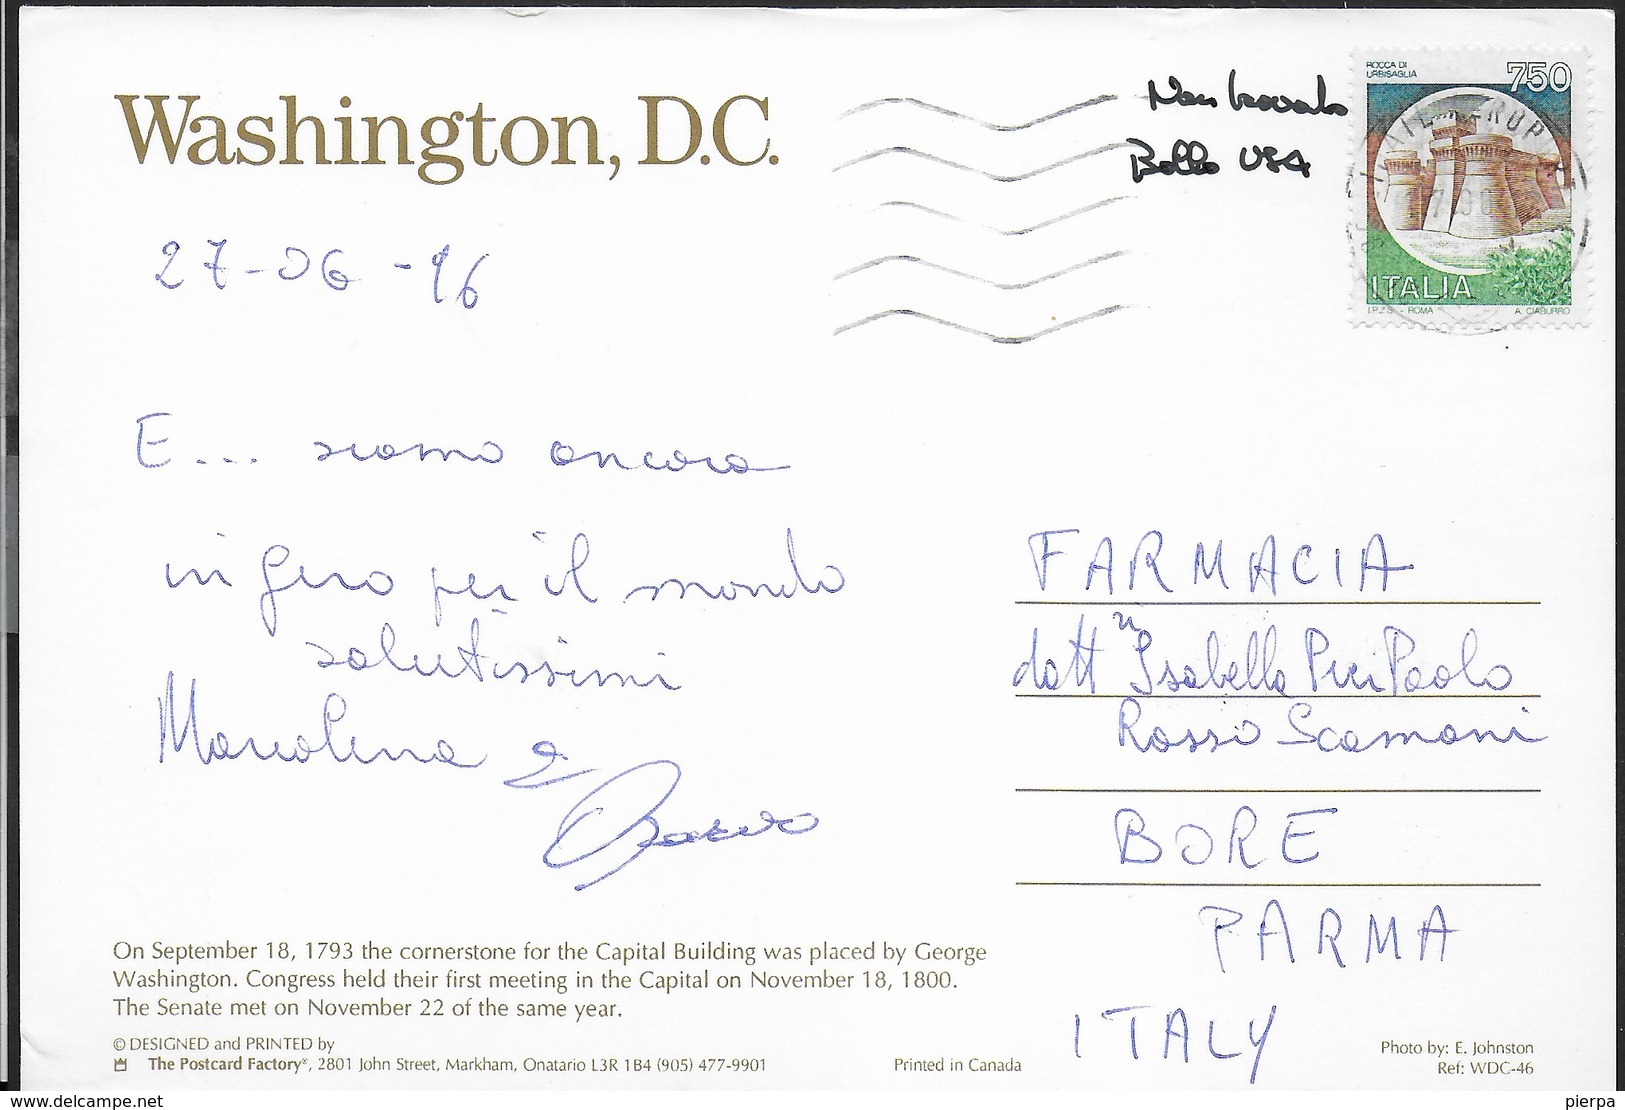 Washington, D.C.
27-06-96
Non trovato
Bollo USA
ROCCA DI
URBISAGLIA
750
ITALIA
I.P.Z.S. - ROMA A. CIABURRO
E... siamo ancora
in giro per il mondo
salutissimi
Marcolina e
FARMACIA
dott Isabella Pier Paolo
Rossi Scamani
BORE
PARMA
ITALY
On September 18, 1793 the cornerstone for the Capital Building was placed by George
Washington. Congress held their first meeting in the Capital on November 18, 1800.
The Senate met on November 22 of the same year.
© DESIGNED and PRINTED by
The Postcard Factory®, 2801 John Street, Markham, Onatario L3R 1B4 (905) 477-9901
Printed in Canada
Photo by: E. Johnston
Ref: WDC-46
www.delcampe.net
pierpa